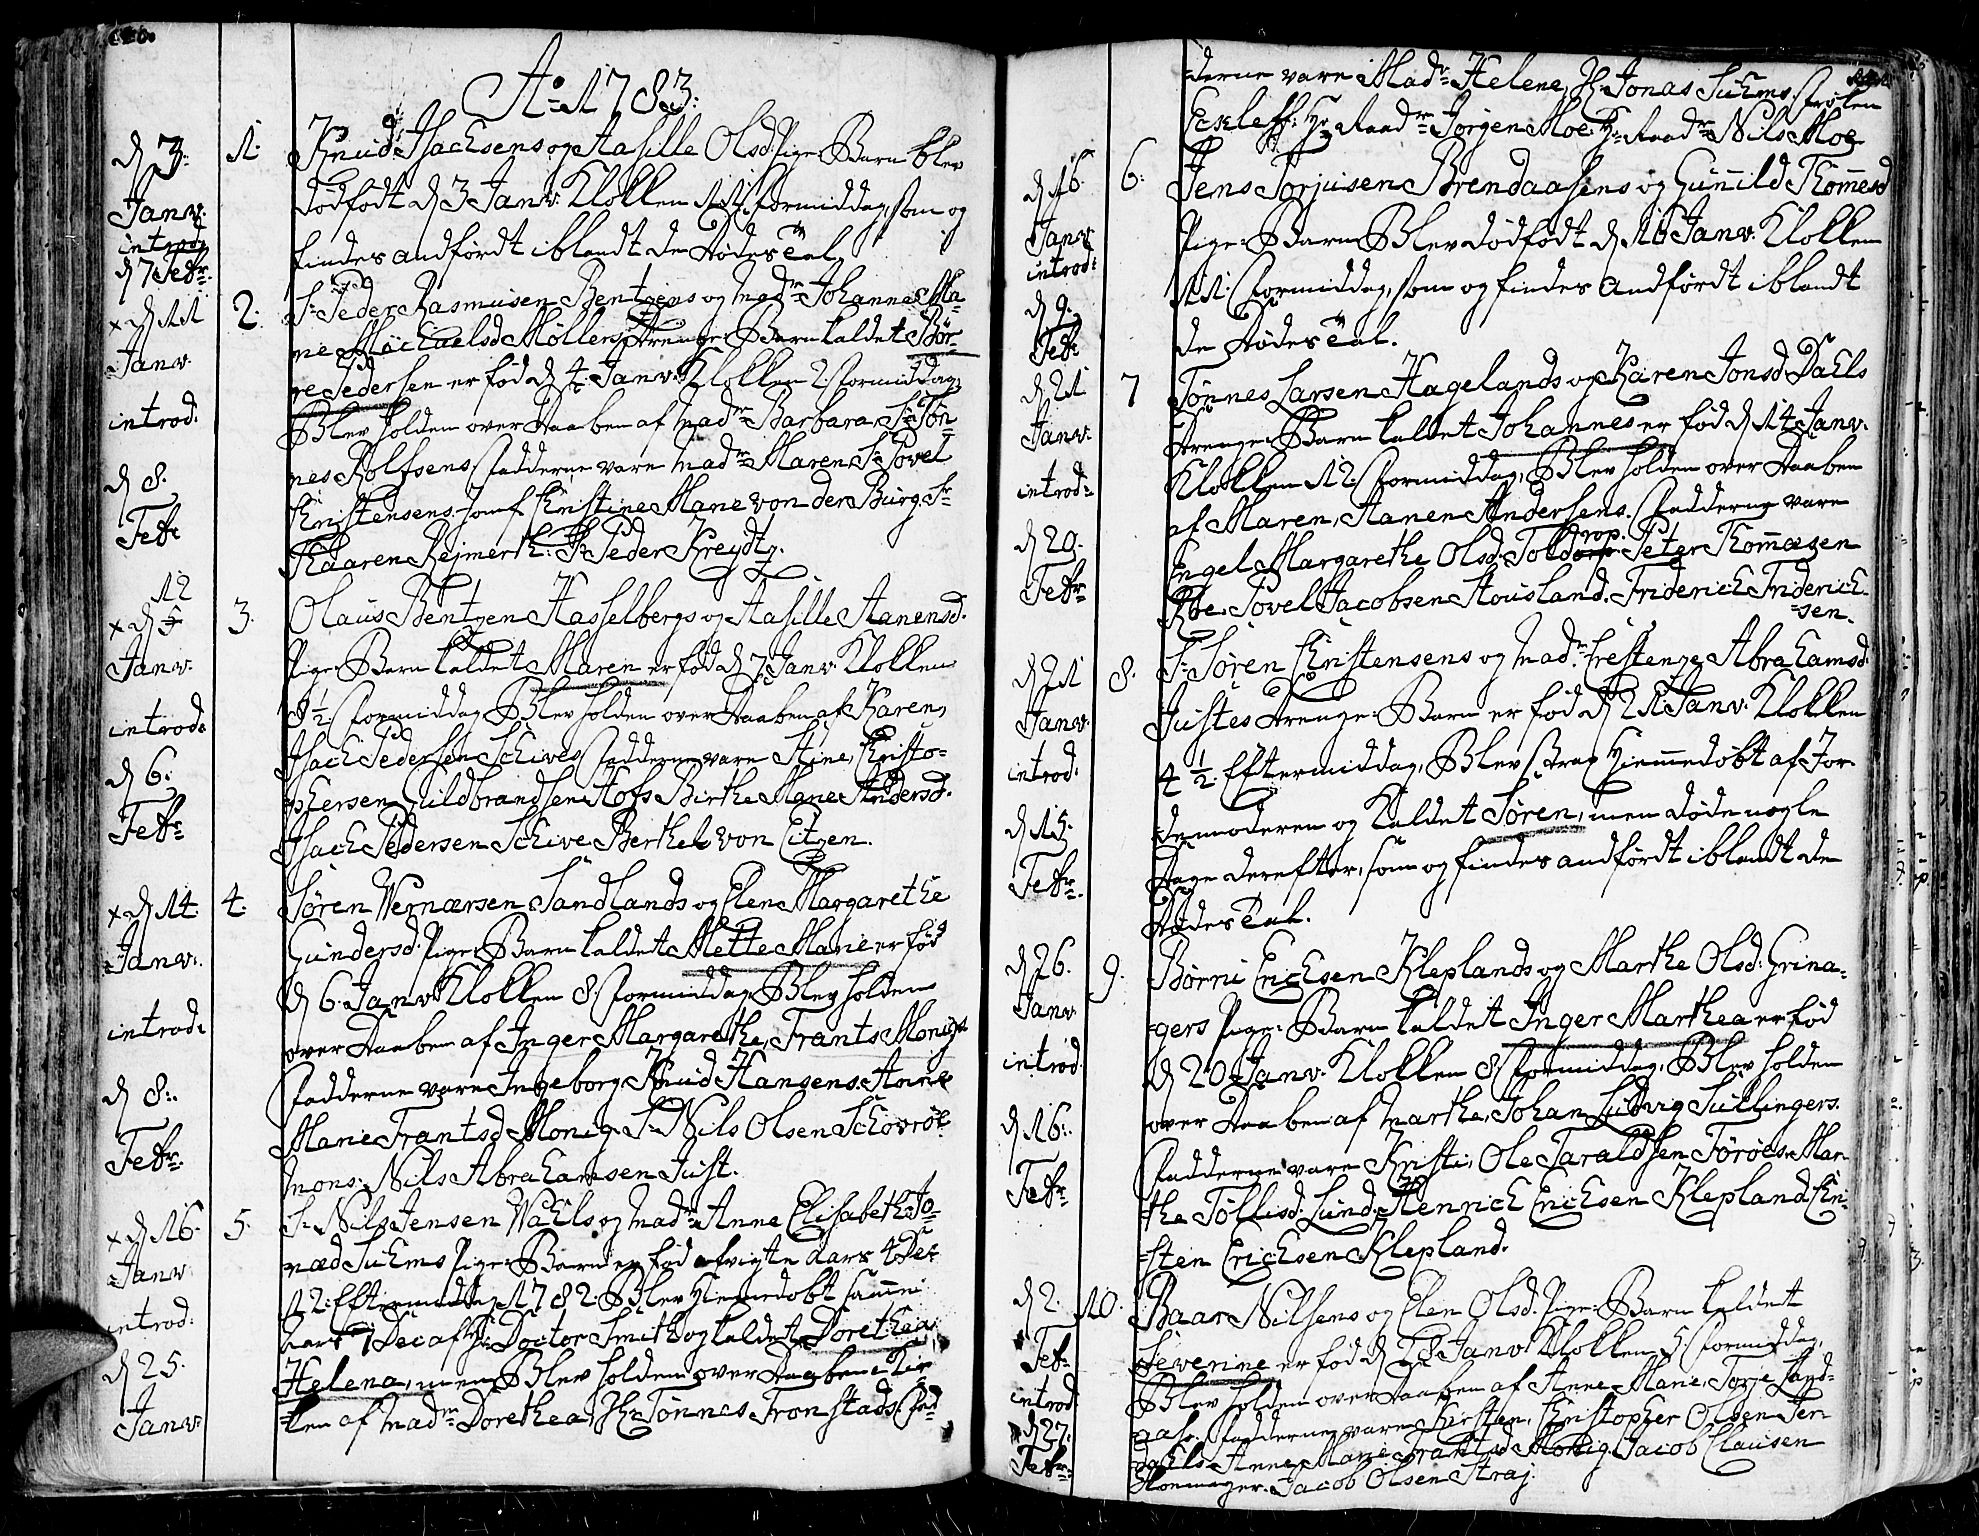 Ao 1783.
d 3. Janv. introd. d 7 Febr.
1. Knud Isachsens og Aasille Olsd. Pige-Barn blev
dødfødt d 3 Janv. Klokken 11 Formiddag, som og
findes andført iblandt de Dødes Tal.
x d 11 Janv. introd. d 8. Febr
2. Sr Peder Rasmusen Bentzens og Madme Johanne Ma-
rie Michaelsd Møllers Drenge-Barn kaldet Bør-
re Pedersen er fød d 4 Janv. Klokken 2 Formiddag,
Blev holden over Daaben af Madme Barbara, Sr Tøn-
nes Rolfsens, Fadderne vare Madme Maren, Sr Povel
Christensens, Jomf Christine Marie von der Burg, Sr
Thaaren Rejmerth. Sr Peder Kreydtz.
12
x d 5 Janv. introd. d 6. Febr
3. Olaus Bentzen Hasselbergs og Aasille Aanensd.
Pige-Barn kaldet Maren er fød d 7 Janv. Klokken
9 1/2 Formiddag Blev holden over Daaben af Karen,
Isach Pedersen Schives Fadderne vare Stine, Christo-
phersen Gildbrandsen Hofs Birthe Marie Andersd.
Isach Pedersen Schive Berthel von Eitzen.
x d 14. Janv. introd. d 8. Febr.
4. Søren Wernærsen Sandlands og Elen Margarethe
Gundersd. Pige-Barn kaldet Mette Marie er fød
d 6 Janv Klokken 8. Formiddag Blev holden
over Daaben af Inger Margarethe, Frants Monigs
Fadderne vare Ingeborg, Knud Hansens, Anne
Marie Frantsd Monig, Sr Nils Olsen Schovrøe
Mons. Nils Abrahamsen Just.
x d 16. Janv. introd. d 25. Janv.
5. Sr Nils Jensen Wahls og Madme Anne Elisabeth Jo-
næd Suhms Pige-Barn er fød afvigte Aars 4 Dec
12. Eftermiddag 1782. Blev Hiemmedøbt samme
Aars 7 Dec af Hr Doctor Smith og kaldet Dorethea
Helena, men Blev holden over Daaben i Kir-
ken af Madme Dorethea, Hr Tønnes Fronstads. Fad-
derne vare Madme Helene, Hr Jonas Suhms, Frøken
Eckleff: Hr Raadm Jørgen Moe. Hr Raadm Nils Moe
d 16 Janv. introd. d 9. Febr
6. Jens Torjusen Brendaasens og Gunnild Thommesd
Pige-Barn Blev dødfødt d 16 Janv. Klokken
11. Formiddag, som og findes Andført iblandt
de Dødes Tal.
d 21 Janv. introd. d 20. Febr
7 Tønnes Larsen Hagelands og Karen Jonsd Dahls
Drenge-Barn kaldet Johannes er fød d 14 Janv.
Klokken 12. Formiddag, Blev holden over Daaben
af Maren, Aanen Andersens. Fadderne vare
Engel Margarethe Olsd. Toldorp. Peter Thommæsen
Kbe. Povel Jacobsen Housland. Friderich Friderich-
sen.
d 21 Janv. introd. d 15. Febr.
8. Sr Søren Christensens og Madme Crestenze Abrahamsd
Justes Drenge-Barn er fød d 21 Janv. Klokken
4 1/2. Eftermiddag, Blev strax Hiemmedøbt af Jor-
demoderen og kaldet Søren, men døde nogle
Dage derefter, som og findes andført iblandt de
Dødes Tal.
d 26. Janv. introd. d 16. Febr
9. Børni Erichsen Kleplands og Marthe Olsd. Grina-
gers Pige-Barn kaldet Inger Marthea er fød
d 20 Janv. Klokken 8 Formiddag, Blev holden
over Daaben af Marthe, Johan Ludvig Sullingers.
Fadderne vare Kristi, Ole Taraldsen Torøes. Mar-
the Tøllisd. Lund, Henrich Erichsen Klepland, Chri-
sten Erichsen Klepland.
d 2. Feb. introd. d 27. Febr
10. Baar Nilsens og Elen Olsd. Pige-Barn kaldet
Severine er fød d 28 Janv Klokken 5 Formiddag,
Blev holden over Daaben af Anne Marie, Torje Land-
aas. Fadderne vare Kirsten, Christopher Olsen Ter-
dahls Anne Marie Frantsd Monig. Jacob Clausen
Skoemager. Jacob Olsen Straj.